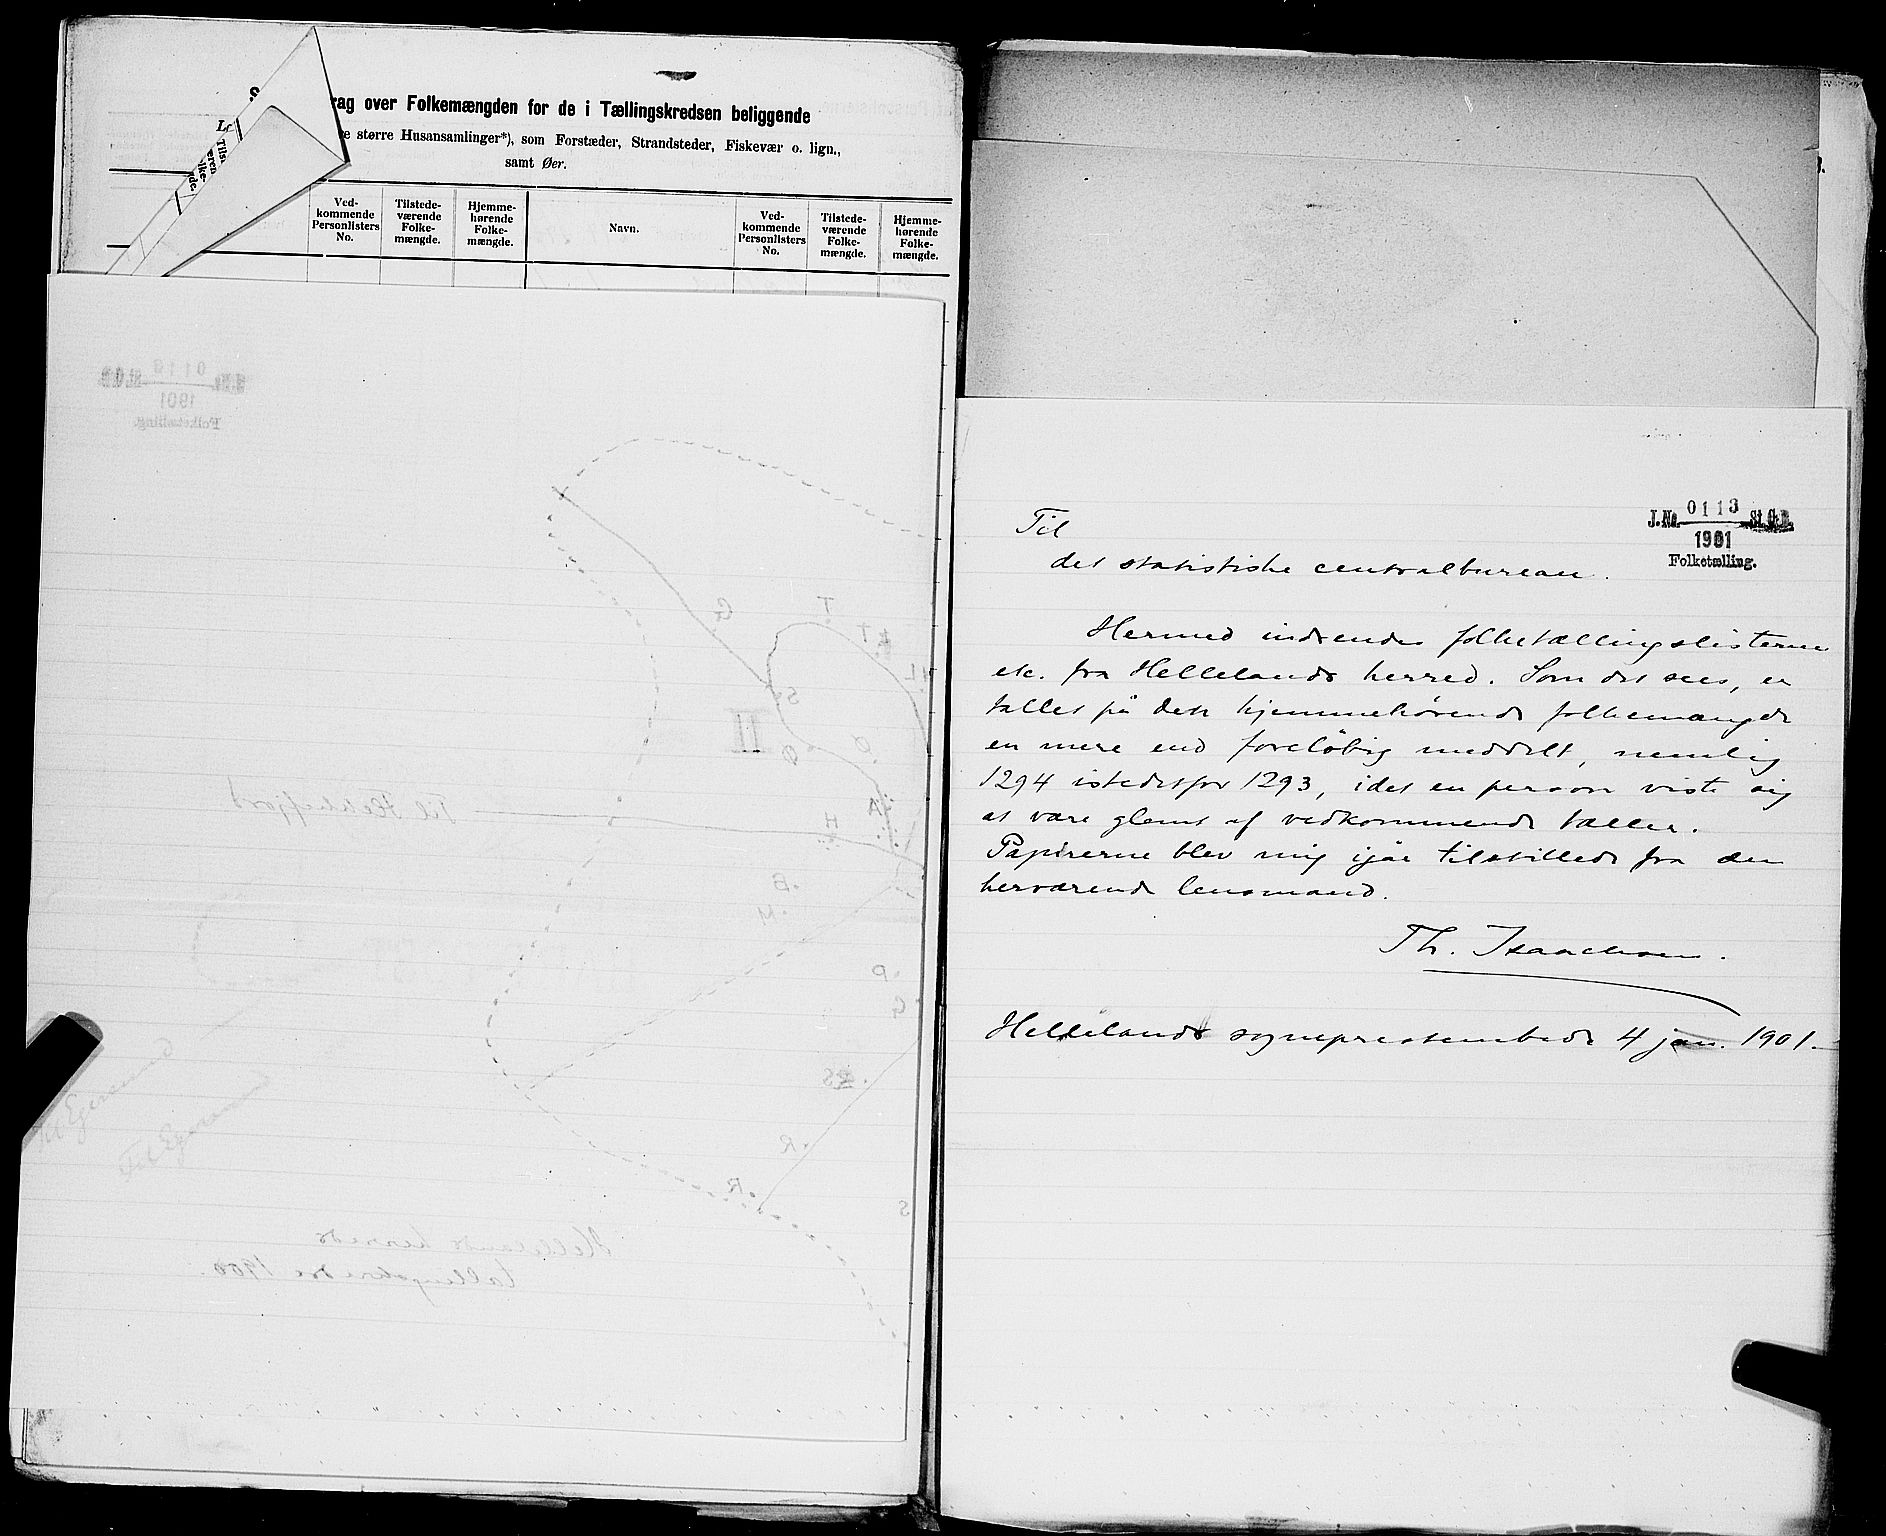 rag over Folkemængden for de i Tællingskredsen beliggende
e større Husansamlinger*), som Forstæder, Strandsteder, Fiskevær o. lign.,
samt Øer.
Ved-
kommende
Personlisters
No.
Tilstede-
værende
Folke-
mængde.
Hjemme-
hørende
Folke-
mængde.
Navn.
Ved-
kommende
Personlisters
No.
Tilstede-
værende
Folke-
mængde.
Hjemme-
hørende
Folke-
mængde.
Til Hekkefjord
II
Til Egersund
Til Egersund
Hellelands herreds
tællingskredse 1900.
J.No. 0113 St.C.B.
1901
Folketælling.
Til
det statistiske centralbureau.
Hermed indsendes folketællingslisterne
etc. fra Hellelands herred. Som det sees, er
tallet på den hjemmehørende folkemængde
en mere end foreløbig meddelt, nemlig
1294 istedetfor 1293, idet en person viste sig
at være glemt af vedkommende tæller.
Papirerne blev mig igår tilstillede fra den
herværende lensmand.
Th. Isaachsen.
Hellelands sogneprestembede 4 jan. 1901.